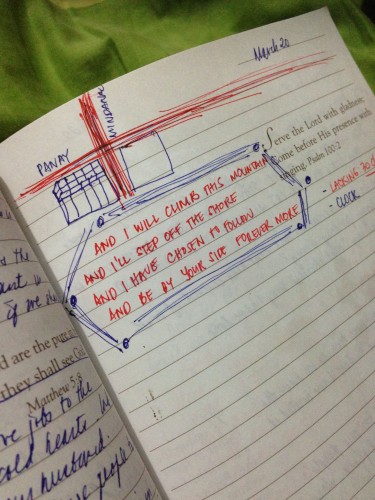 March 20
MINDANAO
PANAY
Serve the Lord with gladness;
Come before His presence with
singing. Psalm 100:2
AND I WILL CLIMB THIS MOUNTAIN
AND I'LL STEP OFF THE SHORE
AND I HAVE CHOSEN TO FOLLOW
AND BE BY YOUR SIDE FOREVER MORE
- LACKING 30
- CLOCK
d are the pure
they shall see God
Matthew 5:8
job to the
cold hearts
husband
people